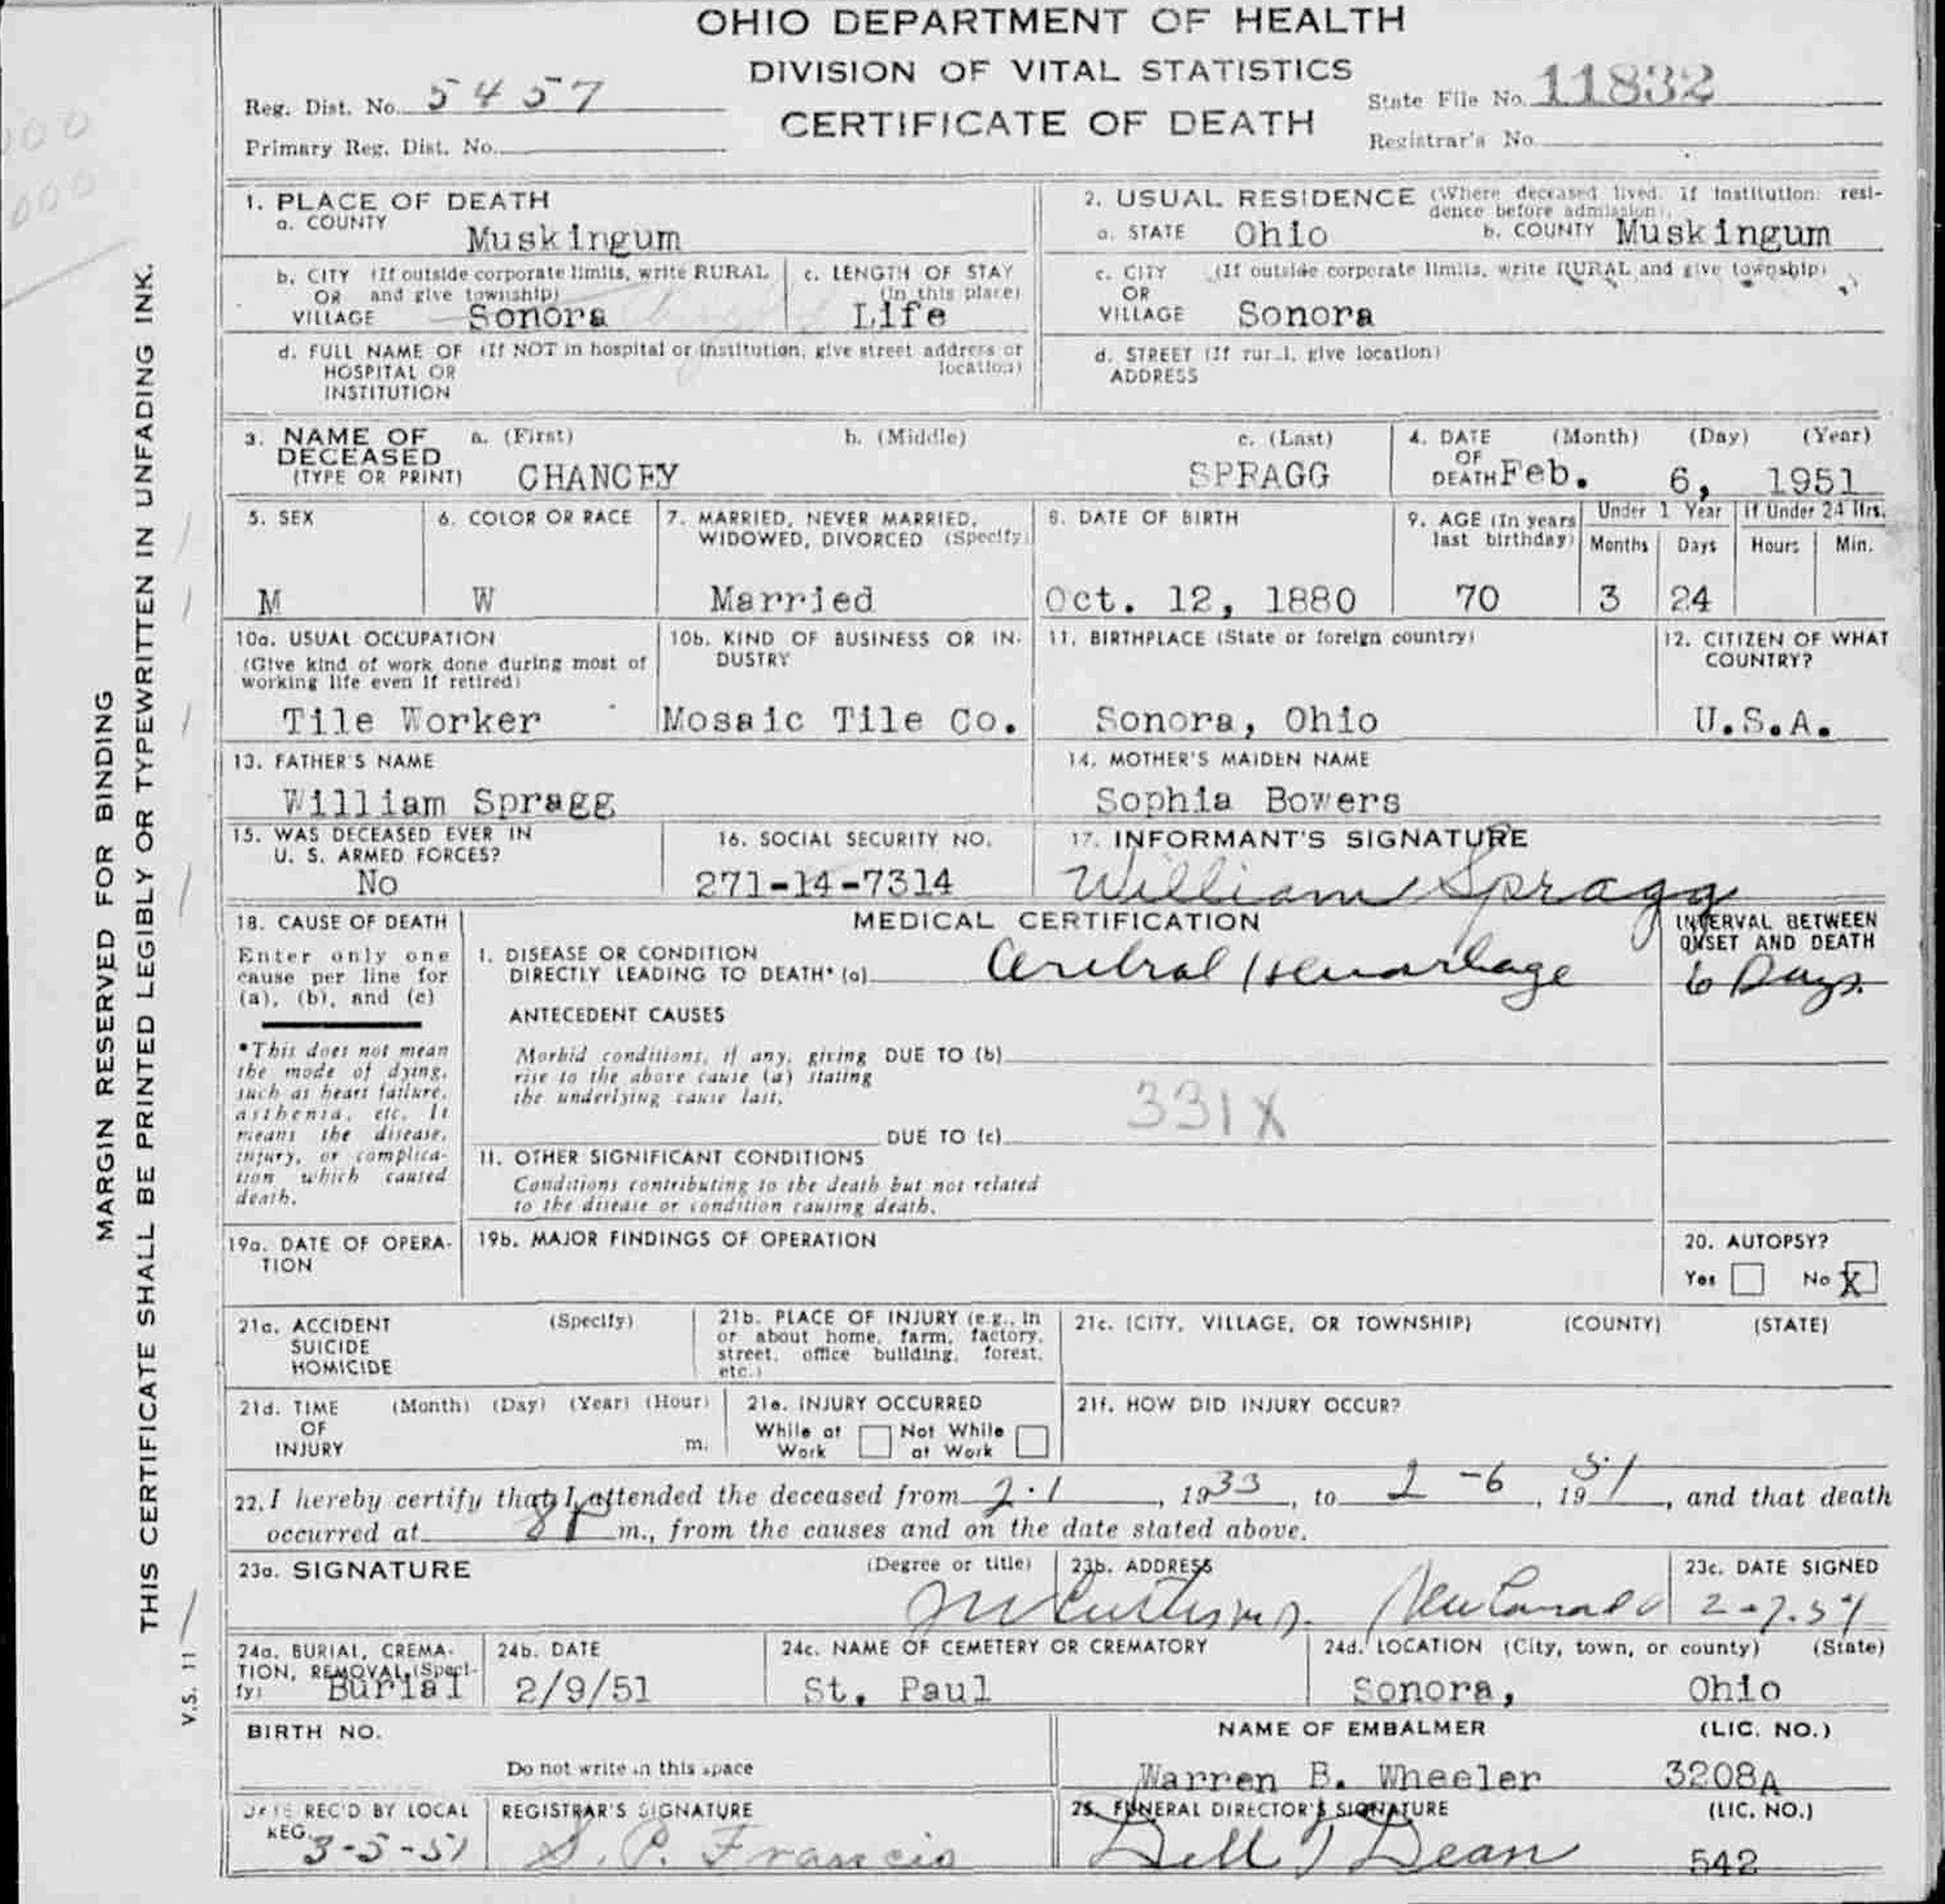 OHIO DEPARTMENT OF HEALTH
DIVISION OF VITAL STATISTICS
CERTIFICATE OF DEATH
Reg. Dist. No. 5457
Primary Reg. Dist. No.
State File No. 11832
Registrar's No.
MARGIN RESERVED FOR BINDING
THIS CERTIFICATE SHALL BE PRINTED LEGIBLY OR TYPEWRITTEN IN UNFADING INK.
V.S. 11
1. PLACE OF DEATH
a. COUNTY Muskingum
b. CITY (If outside corporate limits, write RURAL
OR and give township)
VILLAGE Sonora
c. LENGTH OF STAY
(in this place)
Life
d. FULL NAME OF (If NOT in hospital or institution, give street address or
HOSPITAL OR location)
INSTITUTION
2. USUAL RESIDENCE (Where deceased lived. If institution: resi-
dence before admission).
a. STATE Ohio b. COUNTY Muskingum
c. CITY (If outside corporate limits, write RURAL and give township)
OR
VILLAGE Sonora
d. STREET (If rural, give location)
ADDRESS
3. NAME OF a. (First) b. (Middle) c. (Last)
DECEASED
(TYPE OR PRINT) CHANCEY SPRAGG
4. DATE (Month) (Day) (Year)
OF
DEATH Feb. 6, 1951
5. SEX
M
6. COLOR OR RACE
W
7. MARRIED, NEVER MARRIED,
WIDOWED, DIVORCED (Specify)
Married
8. DATE OF BIRTH
Oct. 12, 1880
9. AGE (In years
last birthday)
70
Under 1 Year
Months Days
3 24
If Under 24 Hrs.
Hours Min.
10a. USUAL OCCUPATION
(Give kind of work done during most of
working life even if retired)
Tile Worker
10b. KIND OF BUSINESS OR IN-
DUSTRY
Mosaic Tile Co.
11. BIRTHPLACE (State or foreign country)
Sonora, Ohio
12. CITIZEN OF WHAT
COUNTRY?
U.S.A.
13. FATHER'S NAME
William Spragg
14. MOTHER'S MAIDEN NAME
Sophia Bowers
15. WAS DECEASED EVER IN
U. S. ARMED FORCES?
No
16. SOCIAL SECURITY NO.
271-14-7314
17. INFORMANT'S SIGNATURE
William Spragg
18. CAUSE OF DEATH
Enter only one
cause per line for
(a), (b), and (c)
*This does not mean
the mode of dying,
such as heart failure,
asthenia, etc. It
means the disease,
injury, or complica-
tion which caused
death.
MEDICAL CERTIFICATION
I. DISEASE OR CONDITION
DIRECTLY LEADING TO DEATH* (a) Cerebral Hemorrhage
INTERVAL BETWEEN
ONSET AND DEATH
6 Days.
ANTECEDENT CAUSES
Morbid conditions, if any, giving DUE TO (b)
rise to the above cause (a) stating
the underlying cause last.
331X
DUE TO (c)
II. OTHER SIGNIFICANT CONDITIONS
Conditions contributing to the death but not related
to the disease or condition causing death.
19a. DATE OF OPERA-
TION
19b. MAJOR FINDINGS OF OPERATION
20. AUTOPSY?
Yes No X
21a. ACCIDENT (Specify)
SUICIDE
HOMICIDE
21b. PLACE OF INJURY (e.g., in
or about home, farm, factory,
street, office building, forest,
etc.)
21c. (CITY, VILLAGE, OR TOWNSHIP) (COUNTY) (STATE)
21d. TIME (Month) (Day) (Year) (Hour)
OF
INJURY m.
21e. INJURY OCCURRED
While at Not While
Work at Work
21f. HOW DID INJURY OCCUR?
22. I hereby certify that I attended the deceased from 2-1, 1933, to 2-6, 1951, and that death
occurred at 8 P m., from the causes and on the date stated above.
23a. SIGNATURE (Degree or title)
23b. ADDRESS
New Concord
23c. DATE SIGNED
2-7-51
24a. BURIAL, CREMA-
TION, REMOVAL (Speci-
fy) Burial
24b. DATE
2/9/51
24c. NAME OF CEMETERY OR CREMATORY
St. Paul
24d. LOCATION (City, town, or county) (State)
Sonora, Ohio
BIRTH NO.
Do not write in this space
NAME OF EMBALMER (LIC. NO.)
Warren B. Wheeler 3208A
DATE REC'D BY LOCAL
REG. 3-5-51
REGISTRAR'S SIGNATURE
S. P. Francis
25. FUNERAL DIRECTOR'S SIGNATURE (LIC. NO.)
Dell J Dean 542